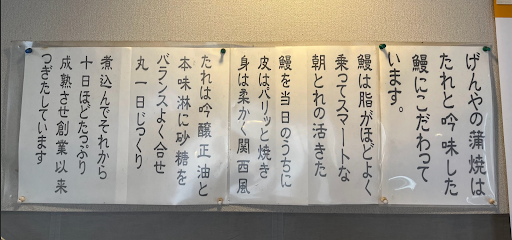 げんやの蒲焼は
たれと吟味した
鰻にこだわって
います。
鰻は脂がほどよく
乗ってスマートな
朝とれの活きた
鰻を当日のうちに
皮はパリッと焼き
身は柔かく関西風
たれは吟醸正油と
本味淋に砂糖を
バランスよく合せ
丸一日じっくり
煮込んでそれから
十日ほどたっぷり
成熟させ創業以来
つぎたしています